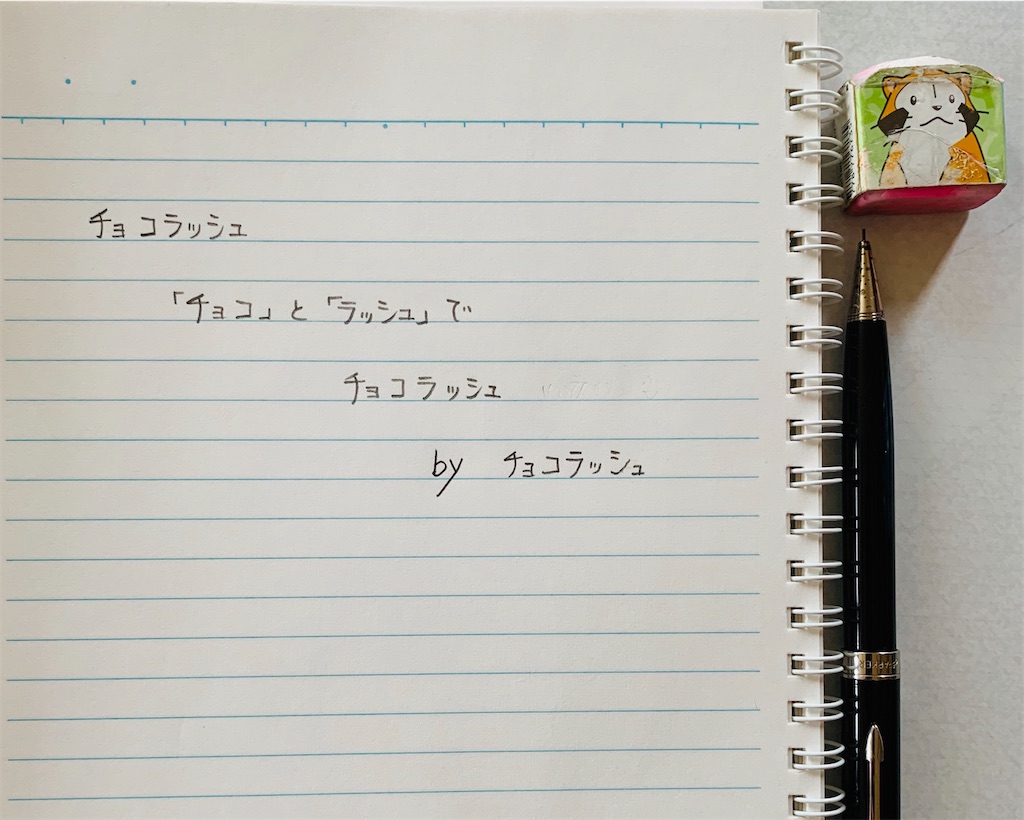 チョコラッシュ
「チョコ」と「ラッシュ」で
チョコラッシュ
by チョコラッシュ